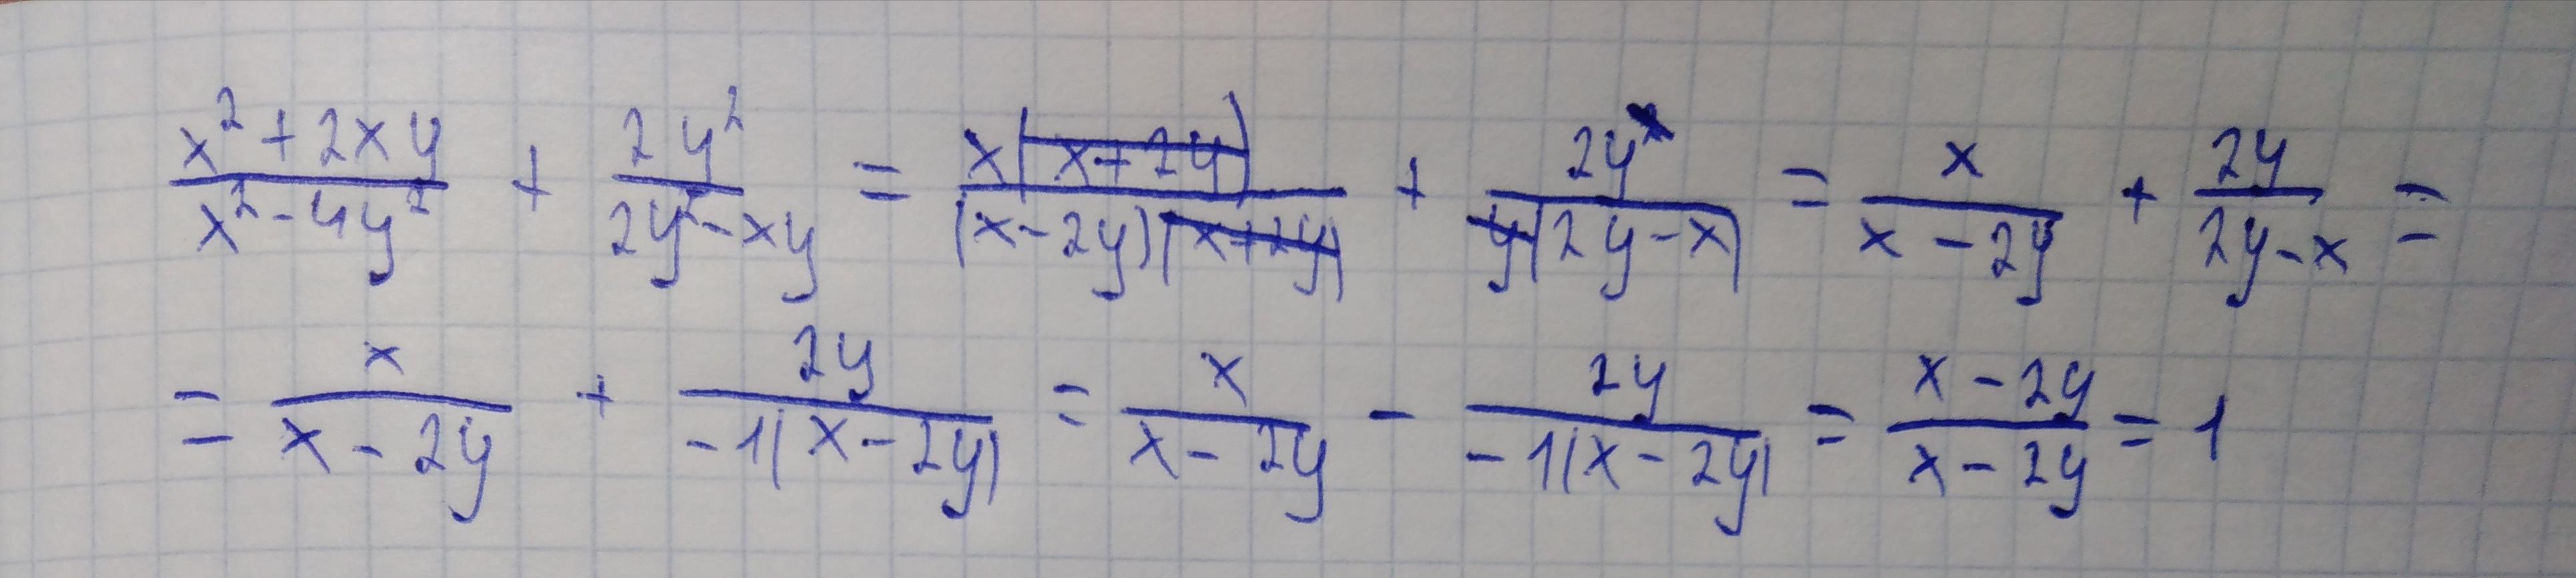 (x²+2xy)/(x²-4y²) + 2y²/(2y²-xy) = x(x+2y)/((x-2y)(x+2y)) + 2y²/(y(2y-x)) = x/(x-2y) + 2y/(2y-x) =
= x/(x-2y) + 2y/(-1(x-2y)) = x/(x-2y) - 2y/(-1(x-2y)) = (x-2y)/(x-2y) = 1